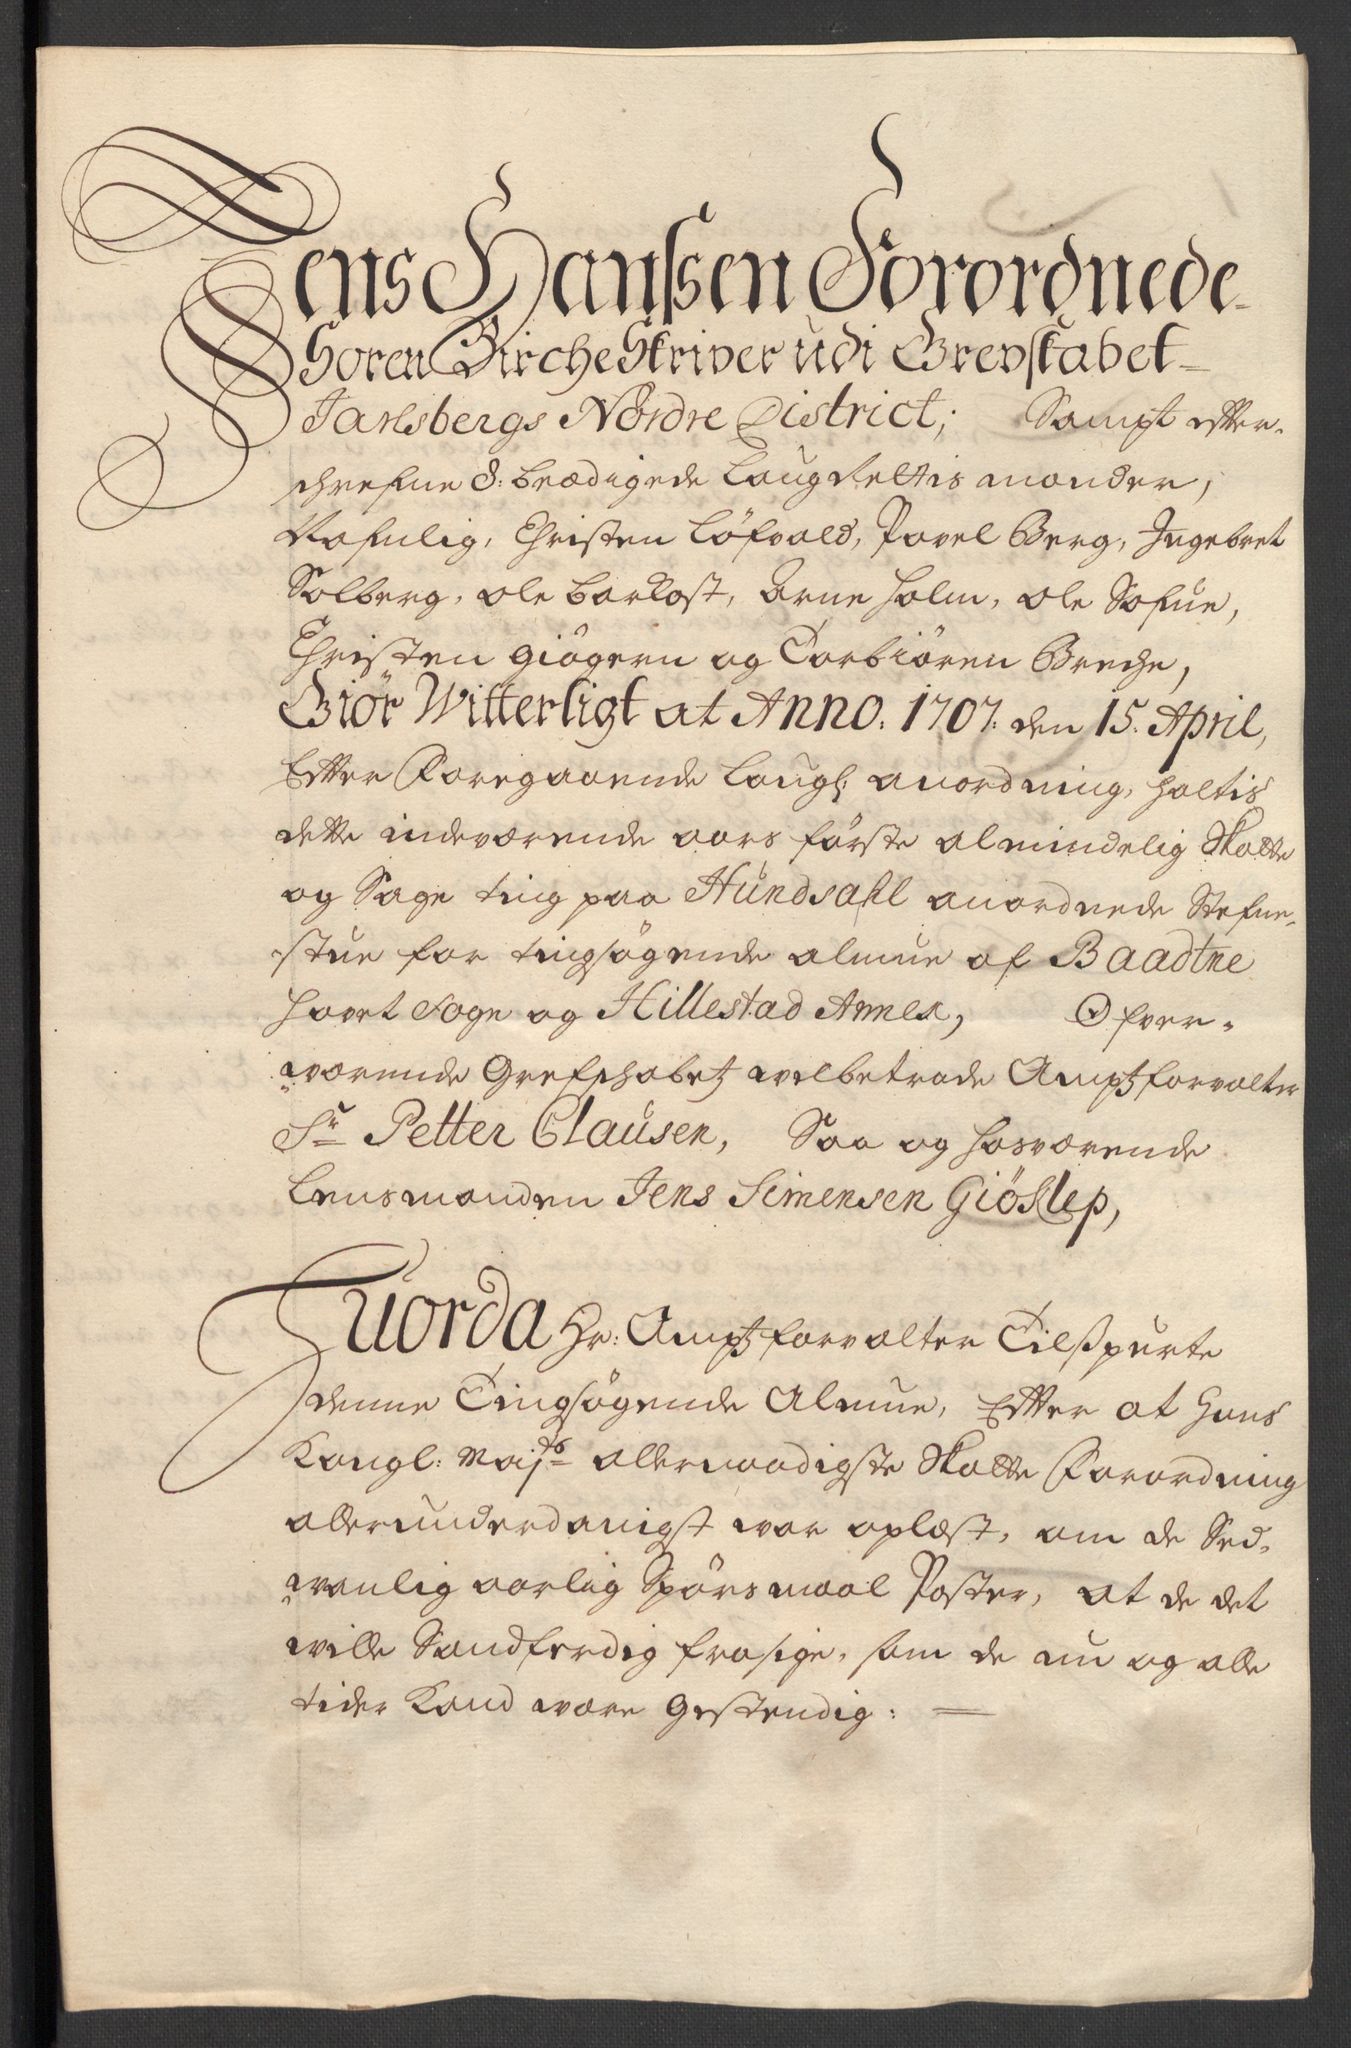 Jens Hanssen Forordnede
Soren BircheSkriver udi Grevskabet
Jarlsbergs Nordre District; Sampt effter-
schrefne 8: beædigede Laugrettis mænder,
Nafnlig, Christen Löfvald, Povel Berg, Ingebret
Solberg, ole barkost, Arne Holm, ole Sofue,
Christen giögern og Torbiören Breche,
Giör Witterligt at Anno. 1707. den 15. April,
Effter Foregaaende laugl: anordning, holtis
dette indeværende aars förste almindelig Skatte
og Sage ting paa Hundsahl anordnede Stefne-
stue for tingsögende almue af Baadtne
hovet Sogn og Hillestad Annex, Ofver-
værende Grefschabetz velbetrode Amptzforvalter
Sr Petter Clausen, Saa og hosværende
Lensmanden Jens Simensen Giöklep,
Huorda Hr: Amptzforvalter Tilspurte
denne Tingsögende Almue, Effter at Hans
Kongl: Mayts allernaadigste Skatte Forordning
allerunderdanigst war oplæst, om de Sed-
wanlig aarlig Spörsmaal Poster, at de det
wille Sandferdig frasige, som de nu og alle
tider kand være gestendig: